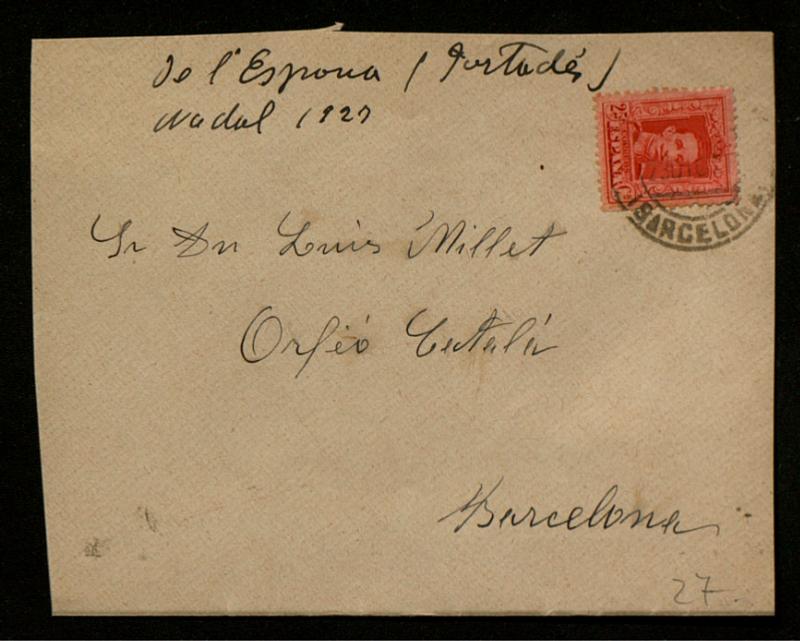 de l'Espona (Tortadés)
Nadal 1927
BARCELONA
Sr Dn Luis Millet
Orfeó Catalá
Barcelona
27.